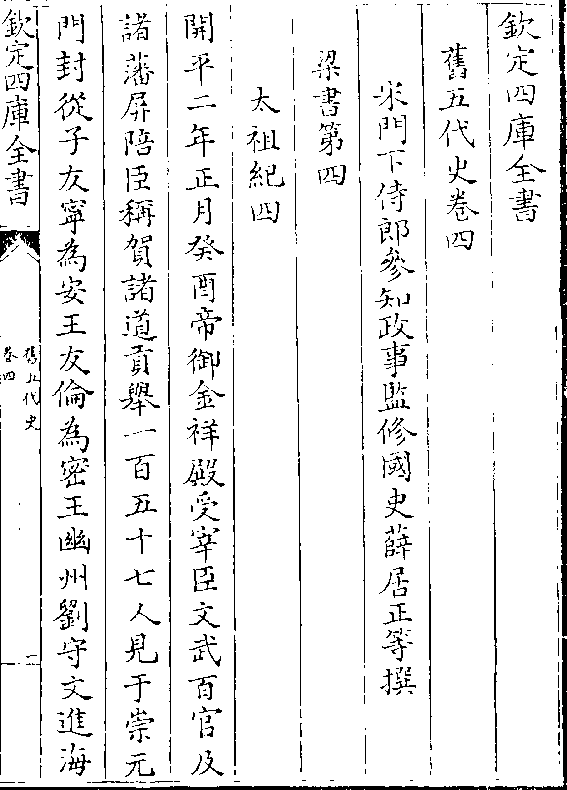 欽定四庫全書
舊五代史卷四
宋門下侍郎參知政事監修國史薛居正等撰
梁書第四
太祖紀四
開平二年正月癸酉帝御金祥殿受宰臣文武百官及
諸藩屏陪臣稱賀諸道貢舉一百五十七人見于崇元
門封從子友寧為安王友倫為密王幽州劉守文進海
欽定四庫全書
舊五代史
卷四
一